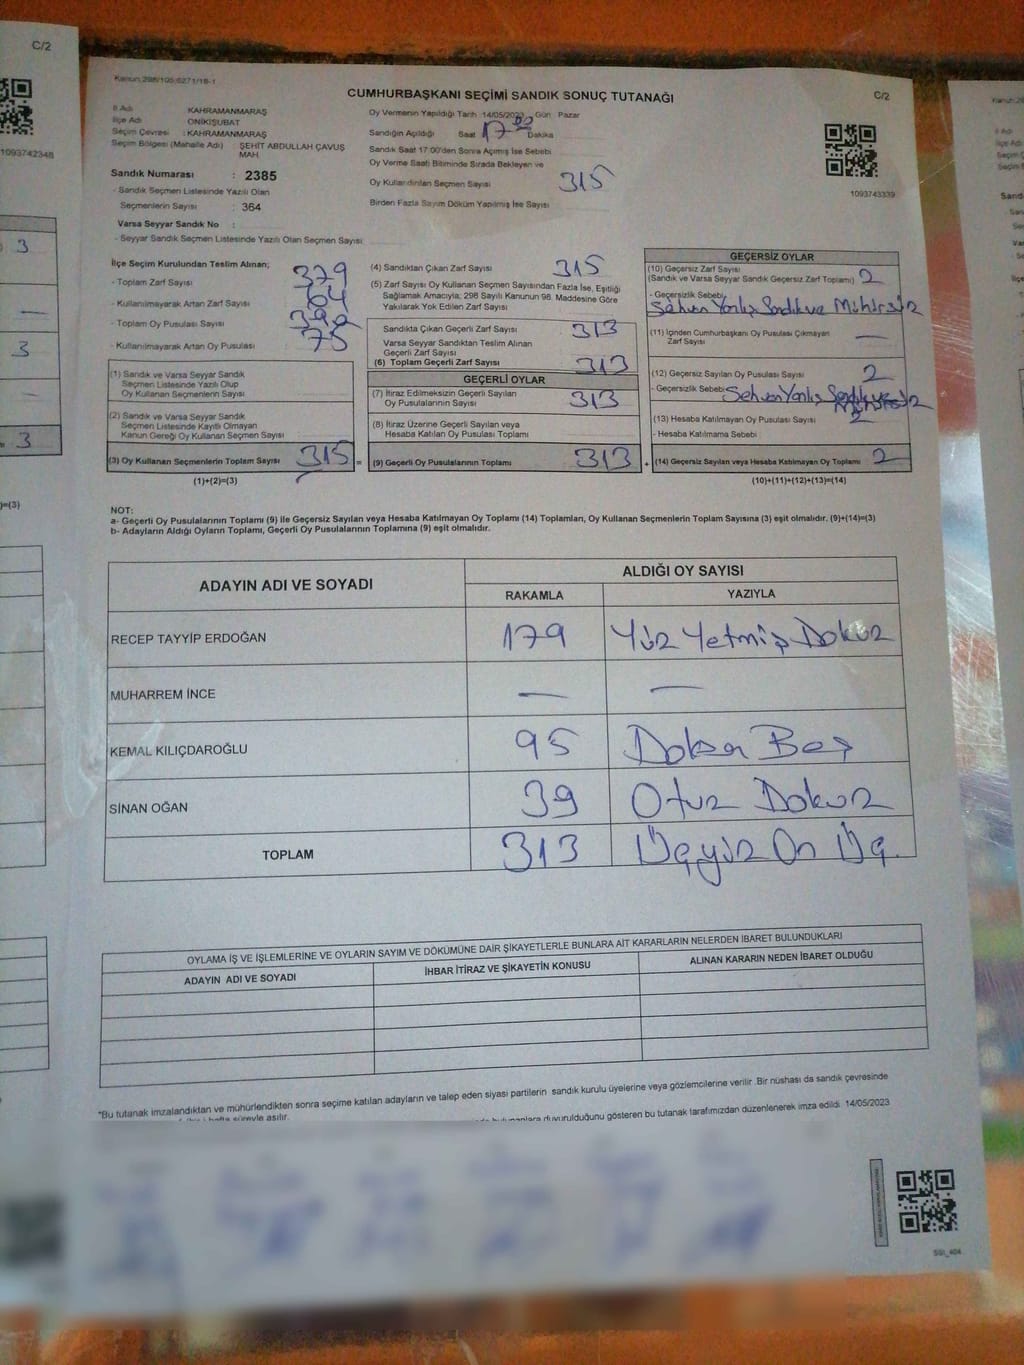 C/2
1093742348
3
3
3
Kanun:298/105;6271/18-1
CUMHURBAŞKANI SEÇİMİ SANDIK SONUÇ TUTANAĞI
C/2
İl Adı KAHRAMANMARAŞ
İlçe Adı ONİKİŞUBAT
Seçim Çevresi : KAHRAMANMARAŞ
Seçim Bölgesi (Mahalle Adı) ŞEHİT ABDULLAH ÇAVUŞ MAH.
Sandık Numarası : 2385
- Sandık Seçmen Listesinde Yazılı Olan
Seçmenlerin Sayısı : 364
Varsa Seyyar Sandık No :
- Seyyar Sandık Seçmen Listesinde Yazılı Olan Seçmen Sayısı
Oy Vermenin Yapıldığı Tarih 14/05/2023 Gün Pazar
Sandığın Açıldığı Saat 17 Dakika
Sandık Saat 17:00'den Sonra Açımış İse Sebebi
Oy Verme Saati Bitiminde Sırada Bekleyen ve
Oy Kullandırılan Seçmen Sayısı 315
Birden Fazla Sayım Döküm Yapılmış İse Sayısı
1093743339
İlçe Seçim Kurulundan Teslim Alınan;
- Toplam Zarf Sayısı 379
- Kullanılmayarak Artan Zarf Sayısı 64
- Toplam Oy Pusulası Sayısı
- Kullanılmayarak Artan Oy Pusulası 75
(1) Sandık ve Varsa Seyyar Sandık
Seçmen Listesinde Yazılı Olup
Oy Kullanan Seçmenlerin Sayısı
(2) Sandık ve Varsa Seyyar Sandık
Seçmen Listesinde Kayıtlı Olmayan
Kanun Gereği Oy Kullanan Seçmen Sayısı
(3) Oy Kullanan Seçmenlerin Toplam Sayısı 315 =
(1)+(2)=(3)
(4) Sandıktan Çıkan Zarf Sayısı 315
(5) Zarf Sayısı Oy Kullanan Seçmen Sayısından Fazla İse, Eşitliği
Sağlamak Amacıyla; 298 Sayılı Kanunun 98. Maddesine Göre
Yakılarak Yok Edilen Zarf Sayısı
Sandıkta Çıkan Geçerli Zarf Sayısı 313
Varsa Seyyar Sandıktan Teslim Alınan
Geçerli Zarf Sayısı
(6) Toplam Geçerli Zarf Sayısı 313
GEÇERLİ OYLAR
(7) İtiraz Edilmeksizin Geçerli Sayılan
Oy Pusulalarının Sayısı 313
(8) İtiraz Üzerine Geçerli Sayılan veya
Hesaba Katılan Oy Pusulası Toplamı
(9) Geçerli Oy Pusulalarının Toplamı 313 +
GEÇERSİZ OYLAR
(10) Geçersiz Zarf Sayısı
(Sandık ve Varsa Seyyar Sandık Geçersiz Zarf Toplamı) 2
- Geçersizlik Sebebi Sehven Yanlış Sandık ve Mühürsüz
(11) İçinden Cumhurbaşkanı Oy Pusulası Çıkmayan
Zarf Sayısı —
(12) Geçersiz Sayılan Oy Pusulası Sayısı 2
- Geçersizlik Sebebi Sehven Yanlış
(13) Hesaba Katılmayan Oy Pusulası Sayısı 2
- Hesaba Katılmama Sebebi
(14) Geçersiz Sayılan veya Hesaba Katılmayan Oy Toplamı 2
(10)+(11)+(12)+(13)=(14)
NOT:
a- Geçerli Oy Pusulalarının Toplamı (9) ile Geçersiz Sayılan veya Hesaba Katılmayan Oy Toplamı (14) Toplamları, Oy Kullanan Seçmenlerin Toplam Sayısına (3) eşit olmalıdır. (9)+(14)=(3)
b- Adayların Aldığı Oyların Toplamı, Geçerli Oy Pusulalarının Toplamına (9) eşit olmalıdır.
ADAYIN ADI VE SOYADI ALDIĞI OY SAYISI
RAKAMLA YAZIYLA
RECEP TAYYİP ERDOĞAN 179 Yüz Yetmiş Dokuz
MUHARREM İNCE — —
KEMAL KILIÇDAROĞLU 95 Doksan Beş
SİNAN OĞAN 39 Otuz Dokuz
TOPLAM 313 Üçyüz On Üç.
OYLAMA İŞ VE İŞLEMLERİNE VE OYLARIN SAYIM VE DÖKÜMÜNE DAİR ŞİKAYETLERLE BUNLARA AİT KARARLARIN NELERDEN İBARET BULUNDUKLARI
ADAYIN ADI VE SOYADI İHBAR İTİRAZ VE ŞİKAYETİN KONUSU ALINAN KARARIN NEDEN İBARET OLDUĞU
*Bu tutanak imzalandıktan ve mühürlendikten sonra seçime katılan adayların ve talep eden siyasi partilerin sandık kurulu üyelerine veya gözlemcilerine verilir. Bir nüshası da sandık çevresinde
hafta süreyle asılır.
duyurulduğunu gösteren bu tutanak tarafımızdan düzenlenerek imza edildi. 14/05/2023
SSI_404